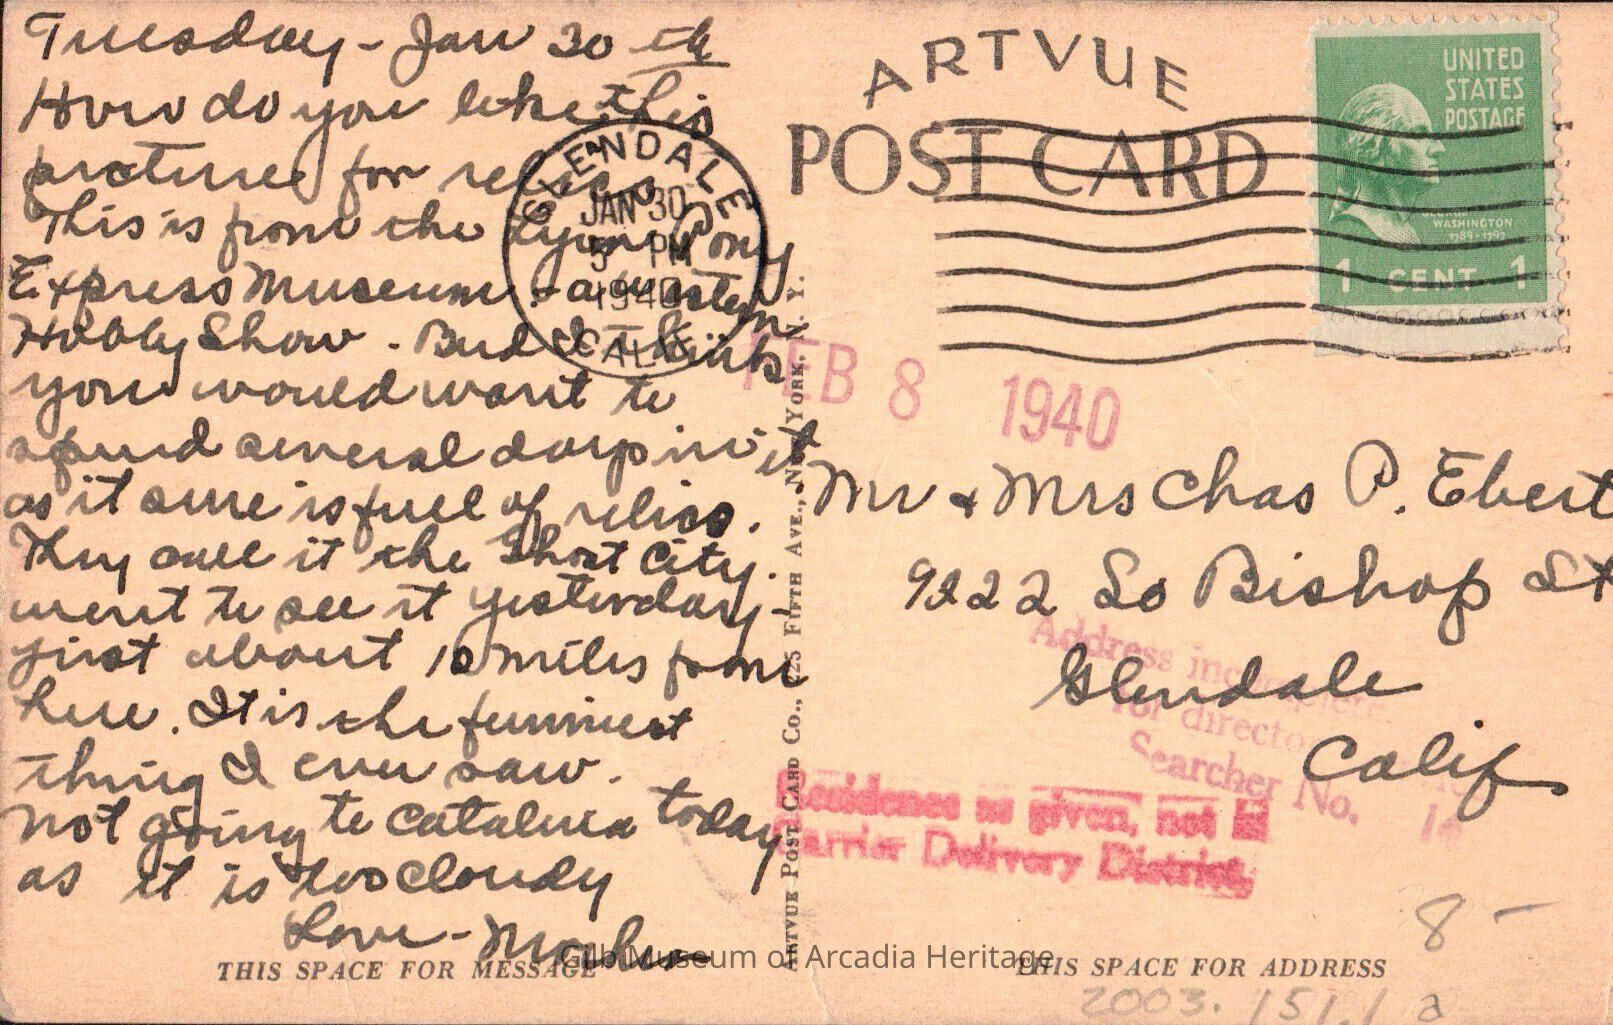 Tuesday - Jan 30 th
How do you like this
pictures for relics
This is from the Lynn Pony
Express Museum - a western
Hobby Show. - Bud I think
you would want to
spend several days in it
as it sure is full of relics.
They call it the Ghost City.
went to see it yesterday -
just about 10 miles from
here. It is the funniest
thing I ever saw.
not going to Catalina today
as it is too cloudy
Love -
THIS SPACE FOR MESSAGE
GLENDALE
JAN 30
5 PM
1940
CALIF
ARTVUE
POST CARD
UNITED
STATES
POSTAGE
WASHINGTON
1789-1797
1 CENT 1
FEB 8 1940
ARTVUE POST CARD CO., 225 FIFTH AVE., NEW YORK, N. Y.
Mr & Mrs Chas P. Ebert
9222 So Bishop St
Glendale
Calif
Address incomplete
for directory
Searcher No. 14
Residence as given, not in
Carrier Delivery District.
8 -
THIS SPACE FOR ADDRESS
2003.151.1 a
Gilb Museum of Arcadia Heritage